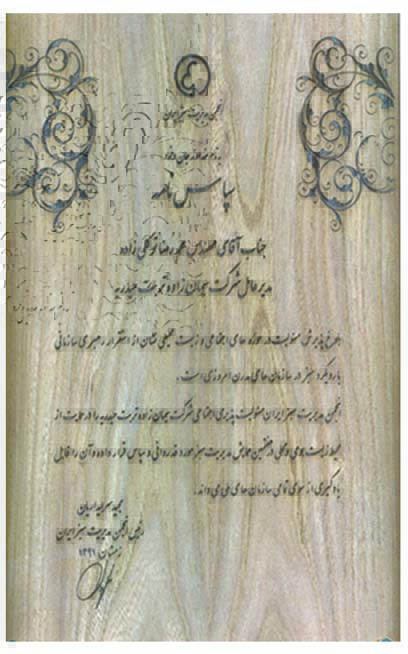 انجمن مدیریت سبز ایران
سپاس نامه
جناب آقای مهندس محمد رضا توکلی زاده
مدیر عامل شرکت سیمان زاوه تربت حیدریه
طرح پذیرش مسئولیت در حوزه های اجتماعی و زیست محیطی نشان از استقرار رهبری سازمانی
با رویکرد سبز در سازمان های مدرن امروزی است.
انجمن مدیریت سبز ایران مسئولیت پذیری اجتماعی شرکت سیمان زاوه تربت حیدریه را در حمایت از
محیط زیست بومی و محلی در هفتمین همایش مدیریت سبز مورد قدردانی و سپاس قرار داده و آن را قابل
یادگیری از سوی تمامی سازمان های ملی می داند.
رئیس انجمن مدیریت سبز ایران
زمستان ۱۳۹۱